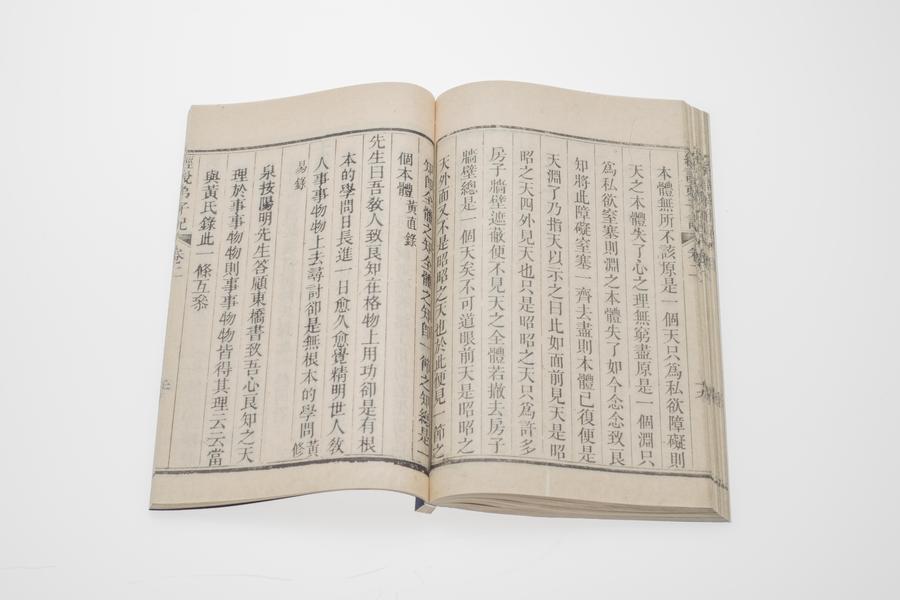 本體無所不該原是一個天只爲私欲障礙則
天之本體失了心之理無窮盡原是一個淵只
爲私欲窒塞則淵之本體失了如今念念致良
知將此障礙窒塞一齊去盡則本體已復便是
天淵了乃指天以示之曰比如面前見天是昭
昭之天四外見天也只是昭昭之天只爲許多
房子牆壁遮蔽便不見天之全體若撤去房子
牆壁總是一個天矣不可道眼前天是昭昭之
天外面又不是昭昭之天也於此便見一節之
知卽全體之知全體之知卽一節之知總是一
個本體 黃直錄
先生曰吾敎人致良知在格物上用功卻是有根
本的學問日長進一日愈久愈覺精明世人敎
人事事物物上去尋討卻是無根本的學問 黃修
易錄
泉按陽明先生答顧東橋書致吾心良知之天
理於事事物物則事事物物皆得其理云云當
與黃氏錄此一條互叅
經說弟子記 卷二